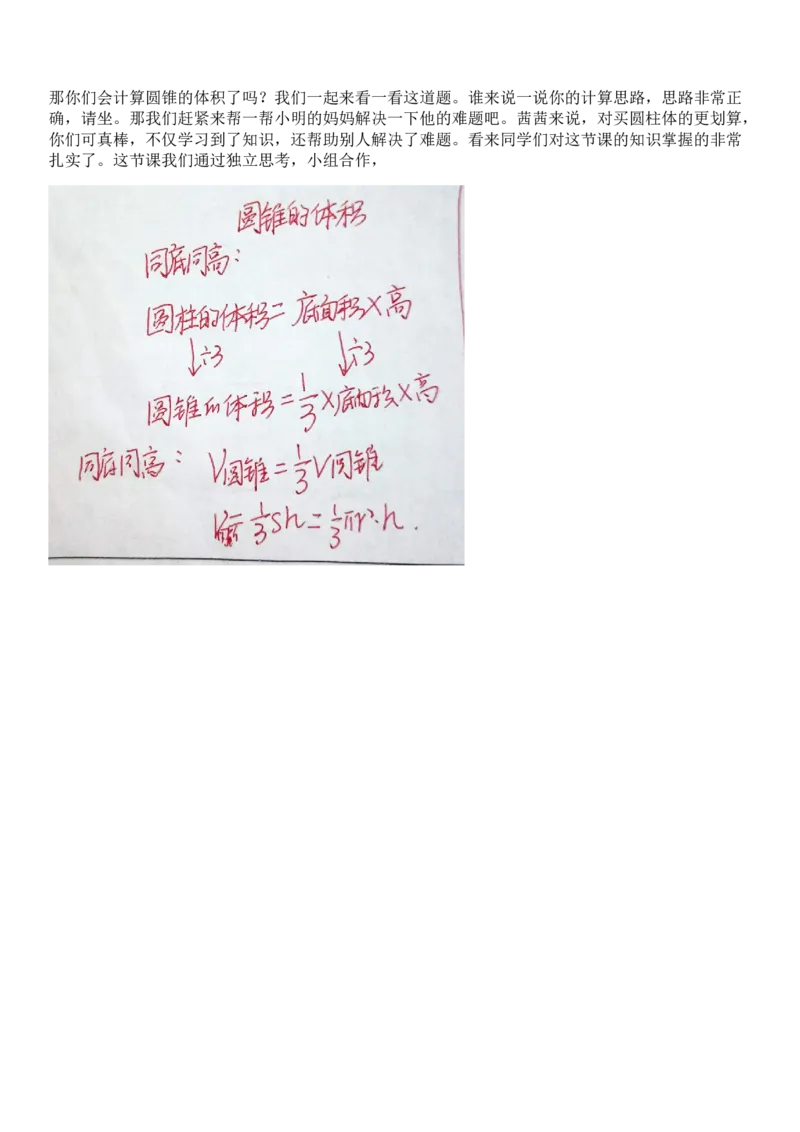 那你们会计算圆锥的体积了吗？我们一起来看一看这道题。谁来说一说你的计算思路，思路非常正
确，请坐。那我们赶紧来帮一帮小明的妈妈解决一下他的难题吧。茜茜来说，对买圆柱体的更划算，
你们可真棒，不仅学习到了知识，还帮助别人解决了难题。看来同学们对这节课的知识掌握的非常
扎实了。这节课我们通过独立思考，小组合作，
圆锥的体积
同底同高：
圆柱的体积=底面积×高
↓÷3 ↓÷3
圆锥的体积=1/3×底面积×高
同底同高： V圆锥=1/3V圆锥
V圆锥=1/3Sh=1/3πr²·h.